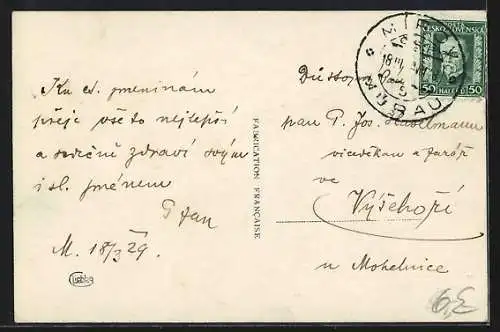 Ku sv. jmeninám
přeje vše to nejlepší
a srdečně zdraví svým
i sl. jménem
M. 18/3 29.
FABRICATION FRANÇAISE
MÜRAU
ČESKOSLOVENSKO
50 HALÉŘŮ 50
Důstojný
pan P. Jos.
viceděkan a farář
ve
Vyšehoří
u Mohelnice
6,E